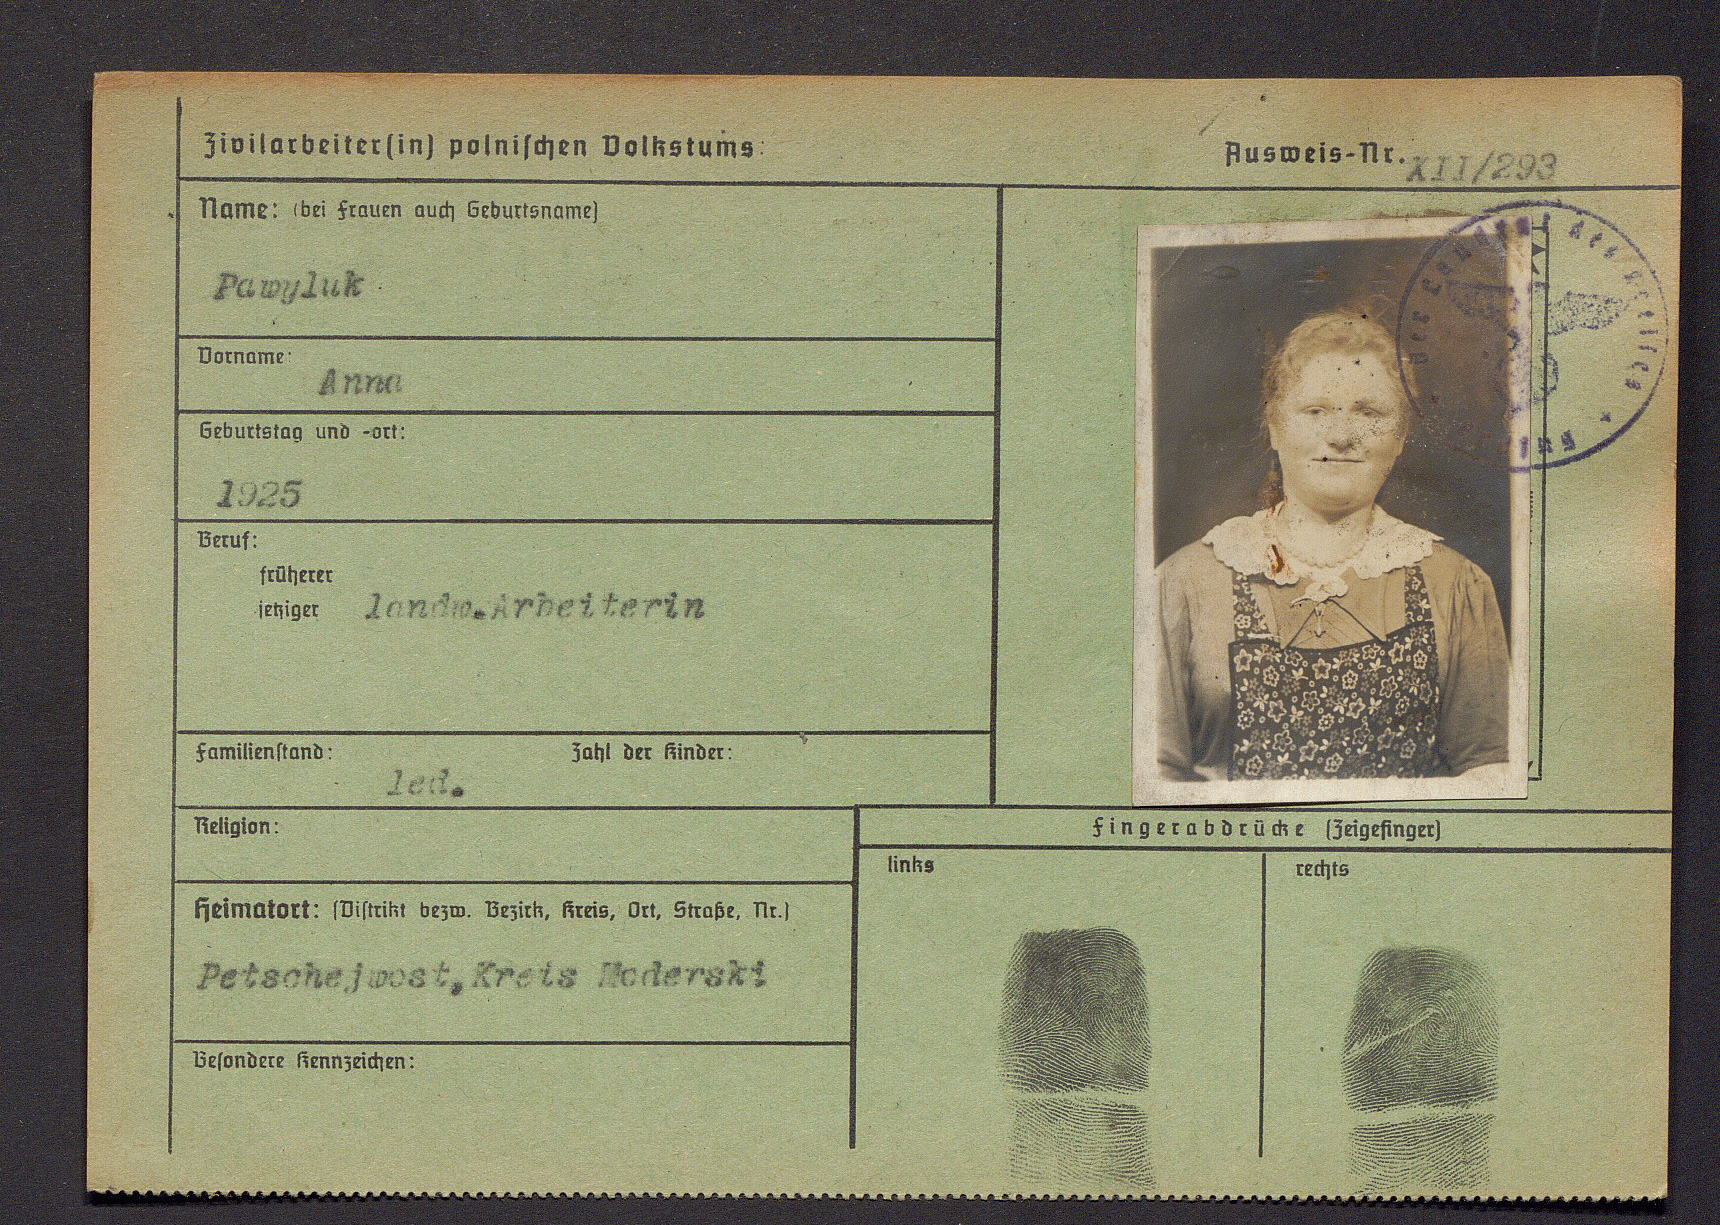 Zivilarbeiter(in) polnischen Volkstums:
Ausweis-Nr. XII/293
Name: (bei Frauen auch Geburtsname)
Pawyluk
Vorname:
Anna
Geburtstag und -ort:
1925
Beruf:
früherer
jetziger landw.Arbeiterin
Familienstand: Zahl der Kinder:
led.
Religion:
Fingerabdrücke (Zeigefinger)
links rechts
Heimatort: (Distrikt bezw. Bezirk, Kreis, Ort, Straße, Nr.)
Petschejwost,Kreis Moderski
Besondere Kennzeichen:
Der Landrat des Kreises